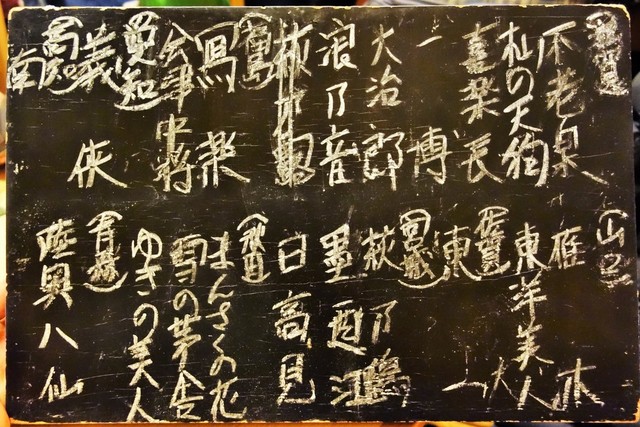 (滋賀)
不老泉
杣の天狗
喜楽長
一博
大治郎
浪乃音
萩乃露
(福島)
寫楽
会津中将
(愛知)
義侠
(高知)
南
(山口)
雁木
東洋美人
(佐賀)
東一
(宮城)
萩乃鶴
墨廼江
日高見
(秋田)
まんさくの花
雪の茅舎
ゆきの美人
(青森)
陸奥八仙